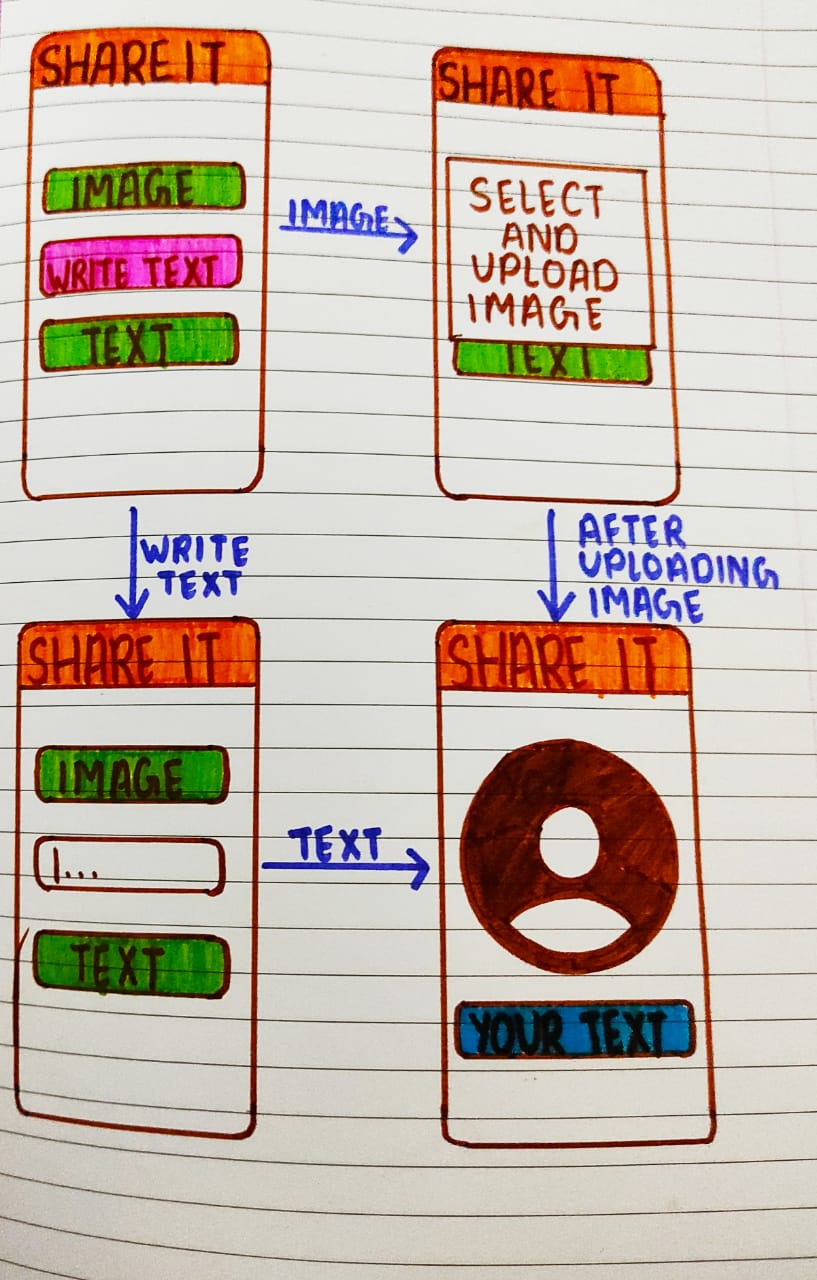 SHARE IT
IMAGE
WRITE TEXT
TEXT
IMAGE
SHARE IT
SELECT
AND
UPLOAD
IMAGE
TEXT
WRITE
TEXT
AFTER
UPLOADING
IMAGE
SHARE IT
IMAGE
|...
TEXT
TEXT
SHARE IT
YOUR TEXT